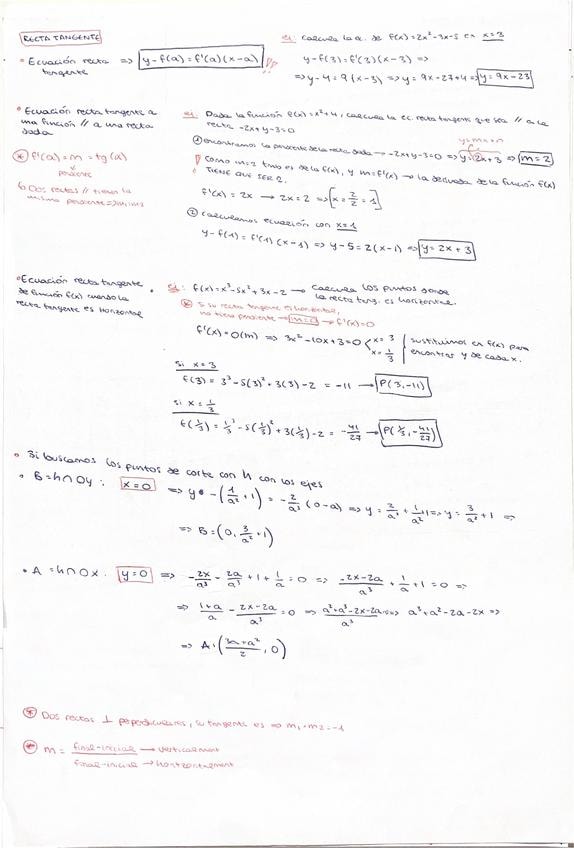 RECTA TANGENTE
• Ecuación recta tangente => y-f(a)=f'(a)(x-a) !!
ej: Calcula la ec. de f(x)=2x²-3x-5 en x=3
y-f(3)=f'(3)(x-3) =>
=> y-4=9(x-3) => y=9x-27+4 => y=9x-23
• Ecuación recta tangente a
una función // a una recta
dada
* f'(a)=m=tg(α)
pendiente
↳ Dos rectas // tienen la
misma pendiente =>
ej: Dada la función f(x)=x²+4, calcula la ec. recta tangente que sea // a la
recta -2x+y-3=0
① encontramos la pendiente de la recta dada → -2x+y-3=0 => y=2x+3 => m=2
y=mx+n
! Como m=2 y m=f'(x) → la derivada de la función f(x)
TIENE QUE SER 2.
f'(x)=2x → 2x=2 => [x=2/2=1]
② Calculamos ecuación con x=1
y-f(1)=f'(1)(x-1) => y-5=2(x-1) => y=2x+3
• Ecuación recta tangente
de función f(x) cuando la
recta tangente es horizontal
ej: f(x)=x³-5x²+3x-2 → Calcula los puntos donde
la recta tang. es horizontal.
* Si su recta tangente es horizontal,
no tiene pendiente → m=0 → f'(x)=0
f'(x)=0(m) => 3x²-10x+3=0 < x=3
x=1/3
sustituimos en f(x) para
encontrar y de cada x.
Si x=3
f(3)=3³-5(3)²+3(3)-2=-11 → P(3,-11)
si x=1/3
f(1/3)=1/3³-5(1/3)²+3(1/3)-2=-41/27 → P(1/3,-41/27)
• Si buscamos los puntos de corte con h con los ejes
• B=h∩Oy: x=0 => y-(1/a²+1)=-2/a³(0-a) => y=2/a²+1/a²+1 => y=3/a²+1 =>
=> B=(0, 3/a²+1)
• A=h∩Ox. y=0 => -2x/a³-2a/a³+1+1/a=0 => -2x-2a/a³+1/a+1=0 =>
=> 1+a/a-2x-2a/a³=0 => a²+a³-2x-2a/a³ => a³+a²-2a-2x =>
=> A:(3a+a²/2, 0)
* Dos rectas ⊥ perpendiculares, su tangente es => m₁·m₂=-1
* m = final-inicial → verticalment
final-inicial → horizontalment